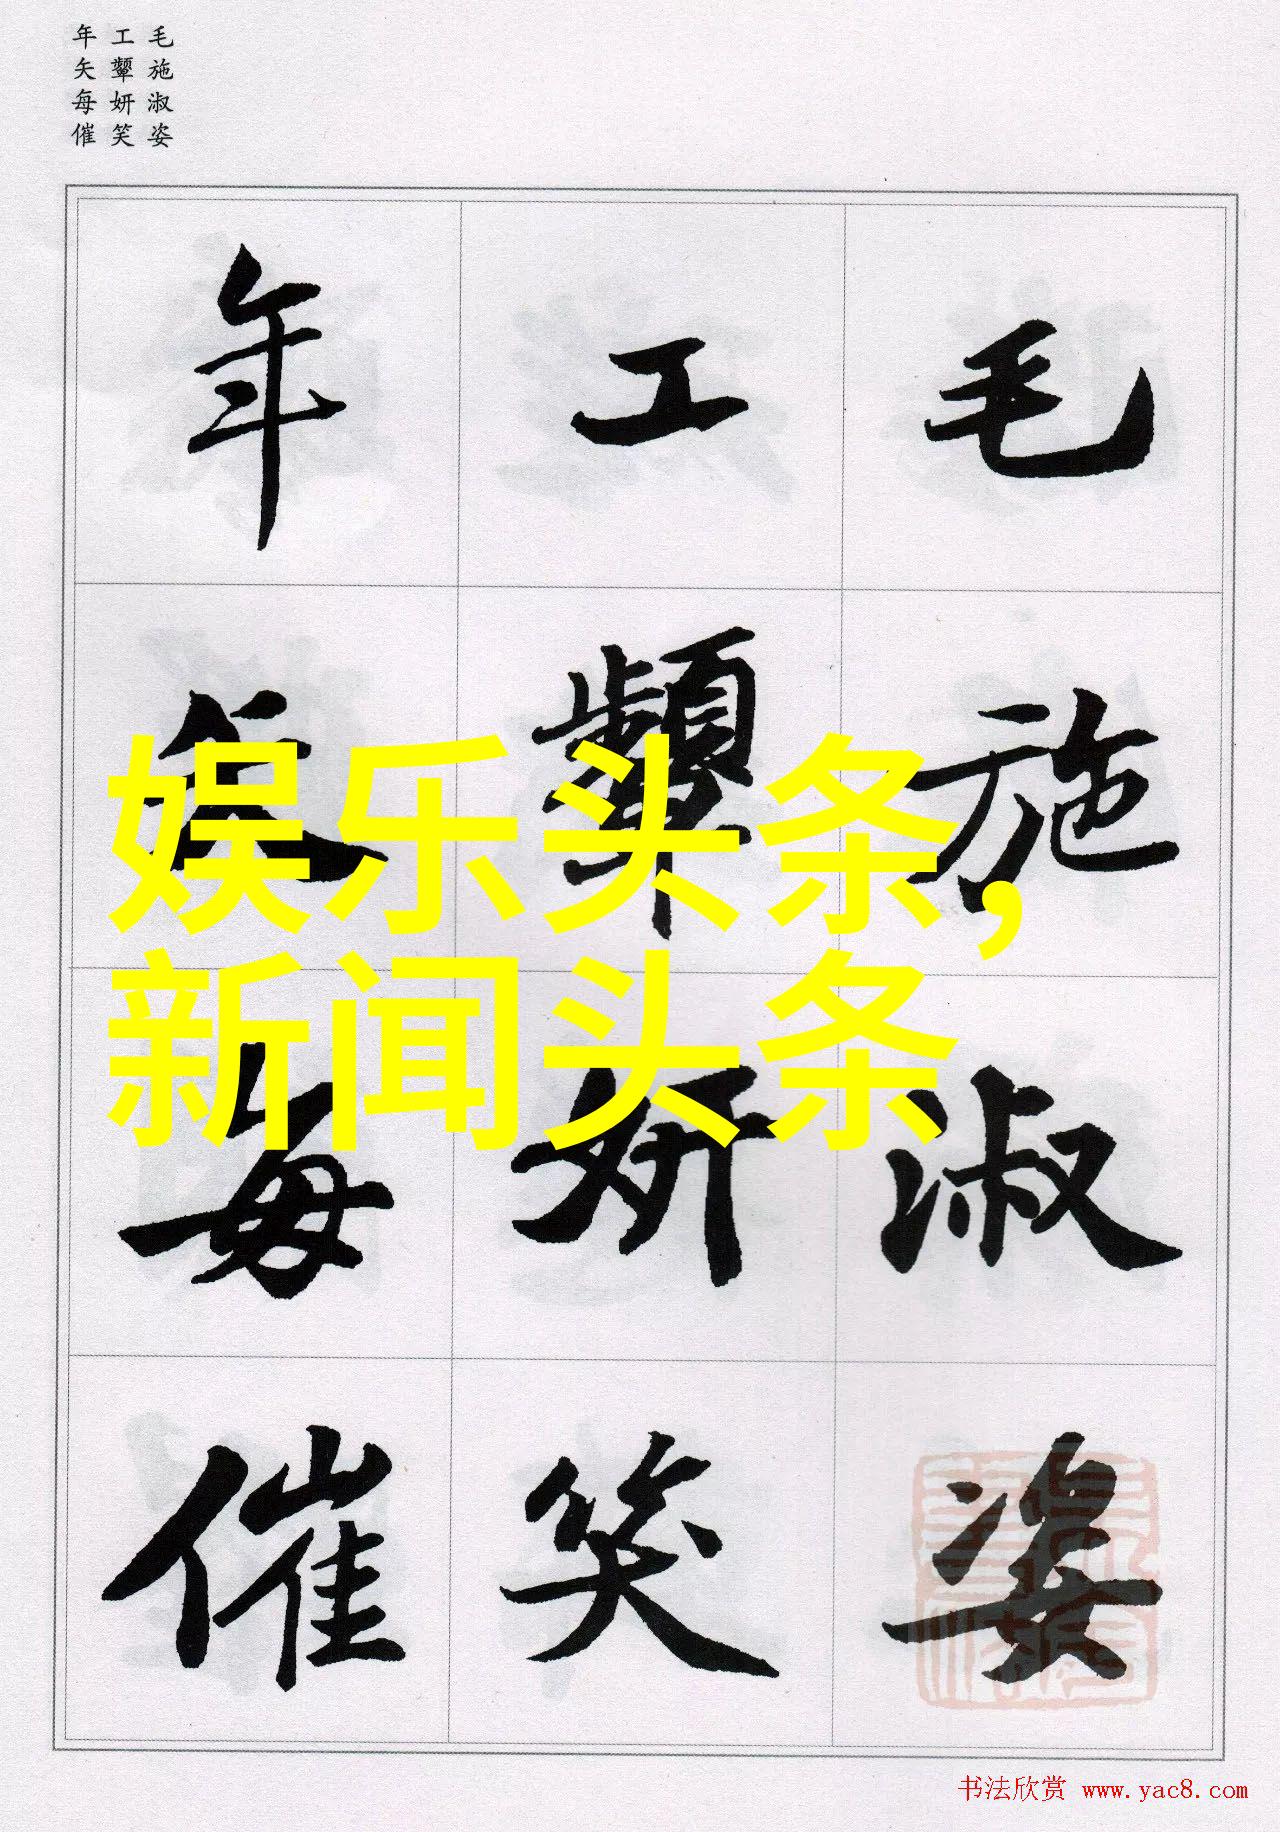 毛施淑姿
工颦妍笑
年矢每催
毛施淑姿
工颦妍笑
年矢每催
娱乐头条,
新闻头条
书法欣赏 www.yac8.com